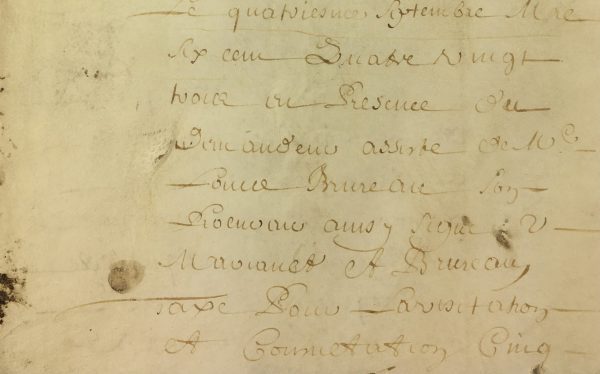 Le quatriesme Septembre Mil
Six cens Quatre vingt
trois en Presence du
Demandeur assisté de Me
Bruneau son
Procureur ainsy signé
et Bruneau,
taxé Pour La visitation
Et Cinq